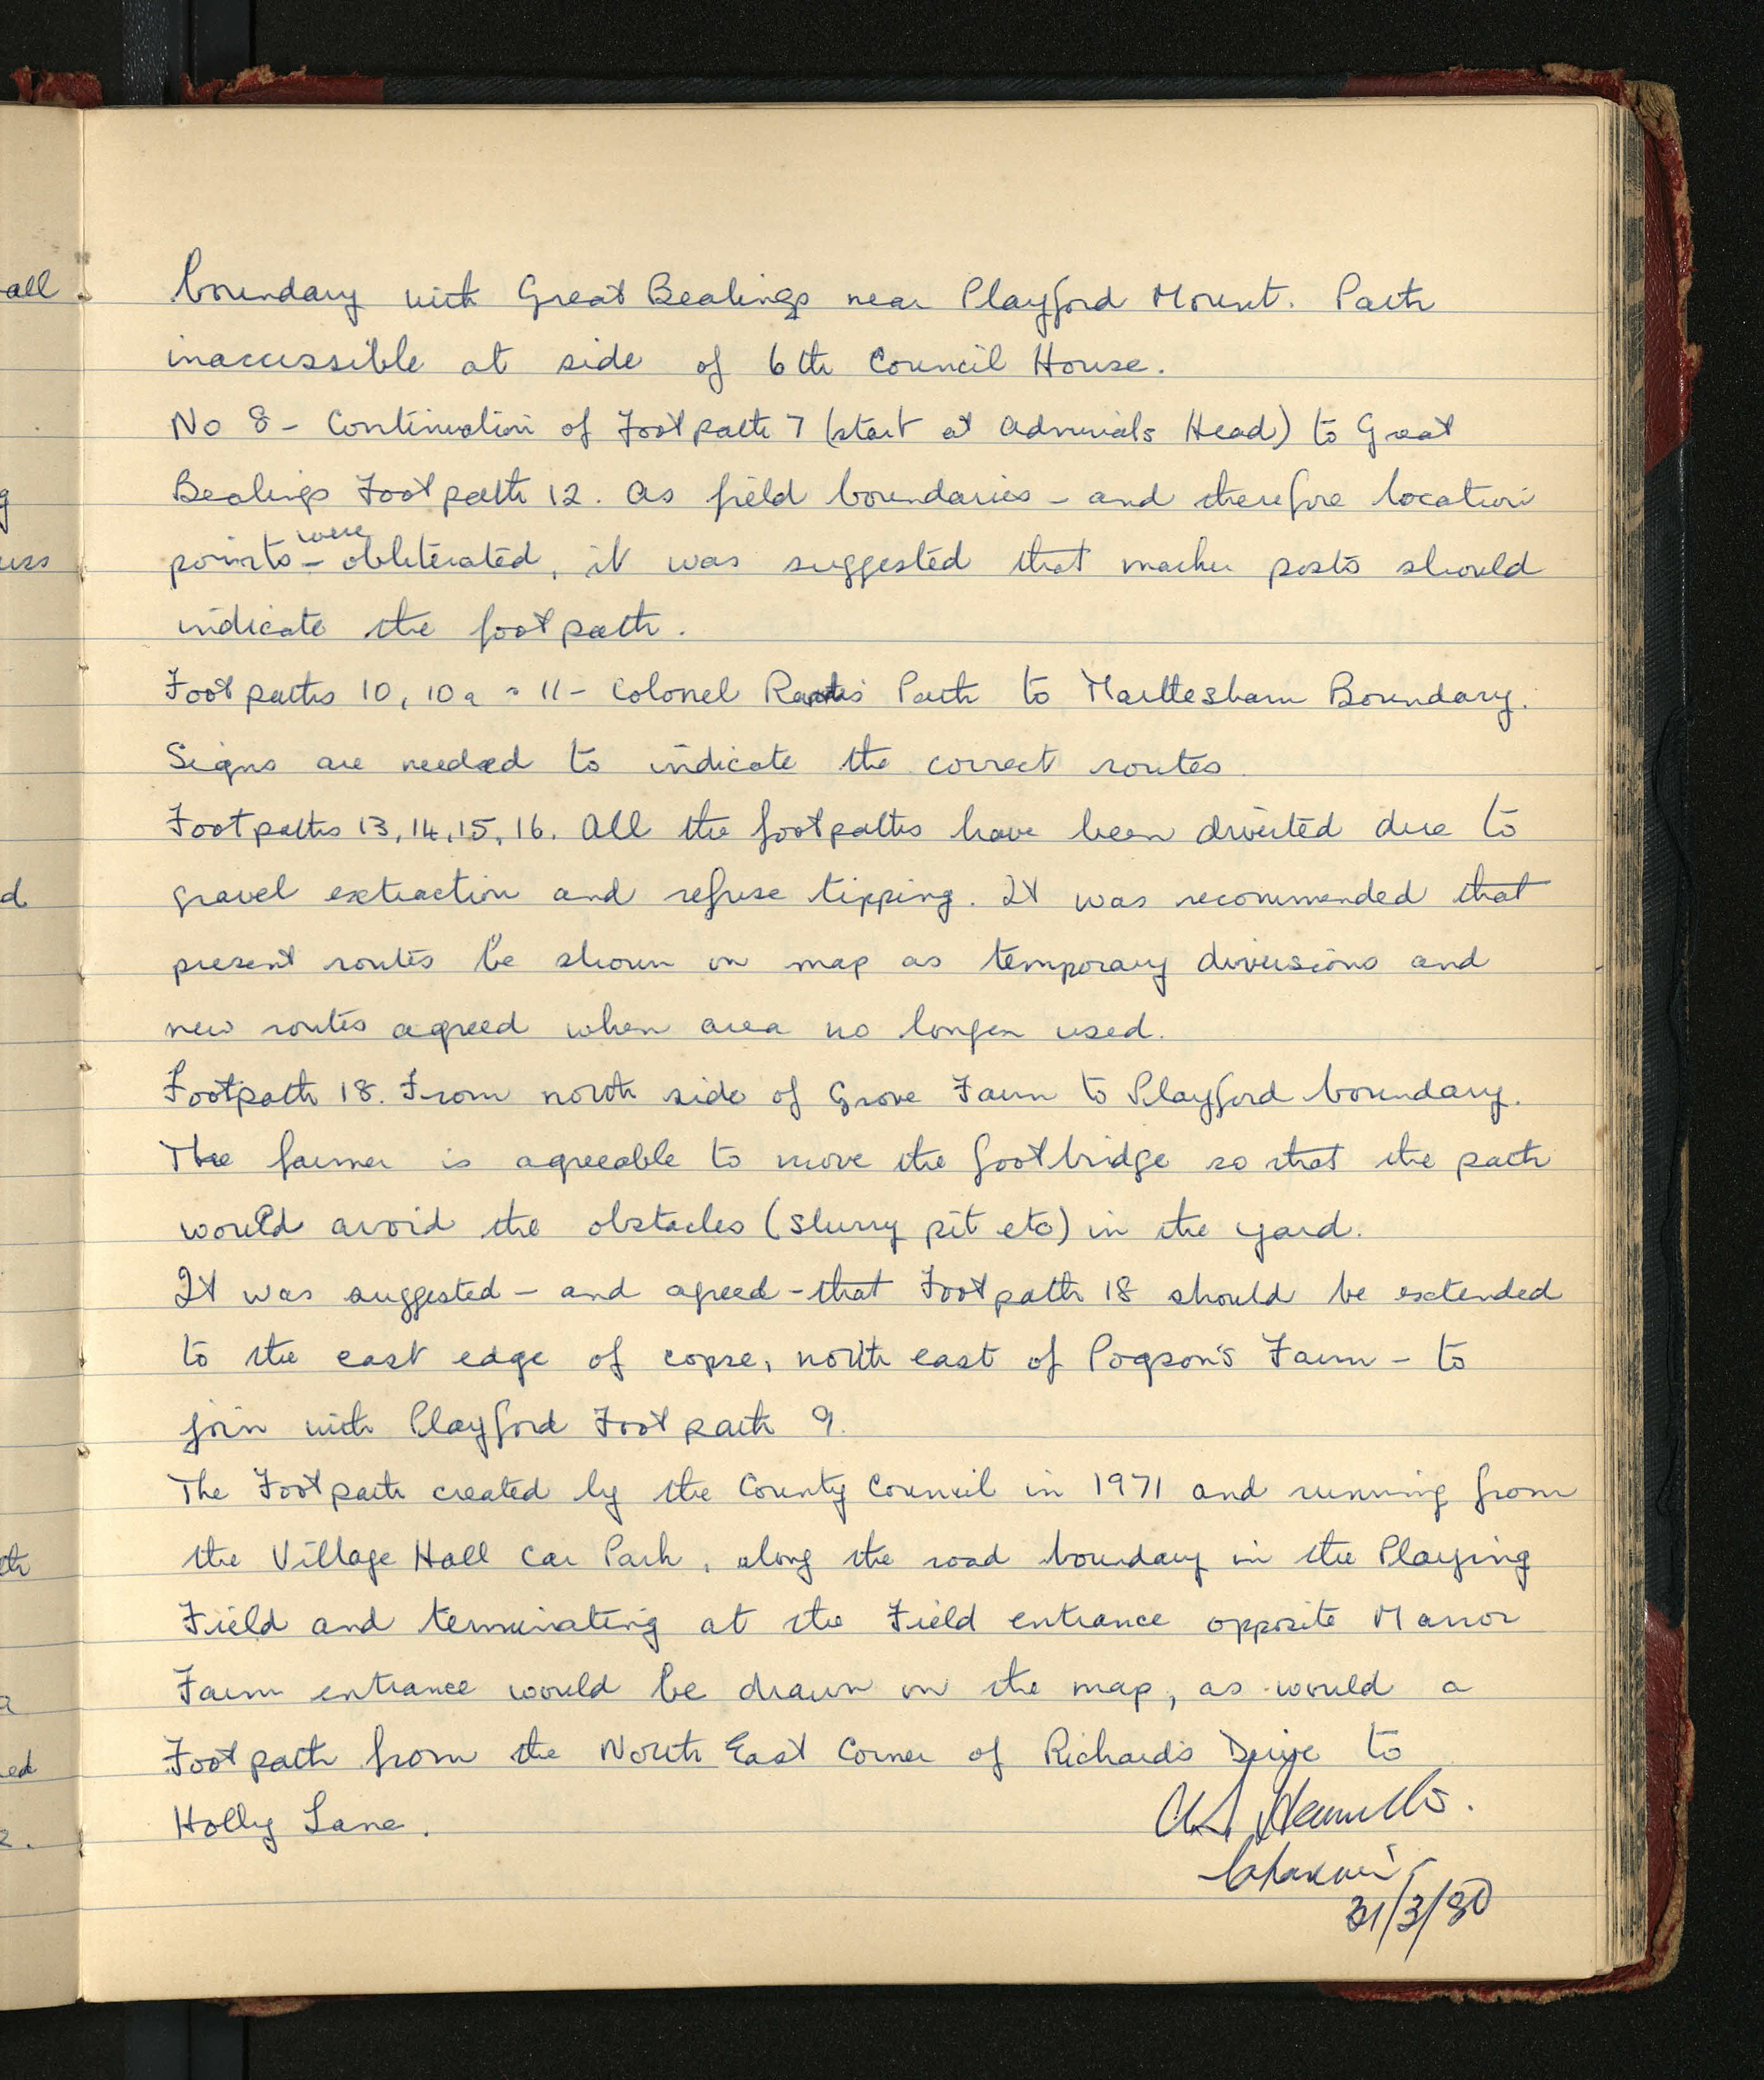 boundary with Great Bealings near Playford Mount. Path
inaccessible at side of 6th Council House.
No 8 - Continuation of Footpath 7 (start at Admirals Head) to Great
Bealings Footpath 12. As field boundaries - and therefore location
points - were obliterated, it was suggested that marker posts should
indicate the footpath.
Footpaths 10, 10a & 11 - Colonel Path to Martlesham Boundary.
Signs are needed to indicate the correct routes
Footpaths 13, 14, 15, 16. All the footpaths have been diverted due to
gravel extraction and refuse tipping. It was recommended that
present routes be shown on map as temporary diversions and
new routes agreed when area no longer used.
Footpath 18. From north side of Grove Farm to Playford boundary.
The farmer is agreeable to move the footbridge so that the path
would avoid the obstacles (slurry pit etc) in the yard.
It was suggested - and agreed - that Footpath 18 should be extended
to the east edge of copse, north east of Pogson's Farm - to
join with Playford Footpath 9.
The Footpath created by the County Council in 1971 and running from
the Village Hall Car Park, along the road boundary in the Playing
Field and terminating at the Field entrance opposite Manor
Farm entrance would be drawn on the map, as would a
Footpath from the North East Corner of Richards Drive to
Holly Lane.
Chairman
31/3/80